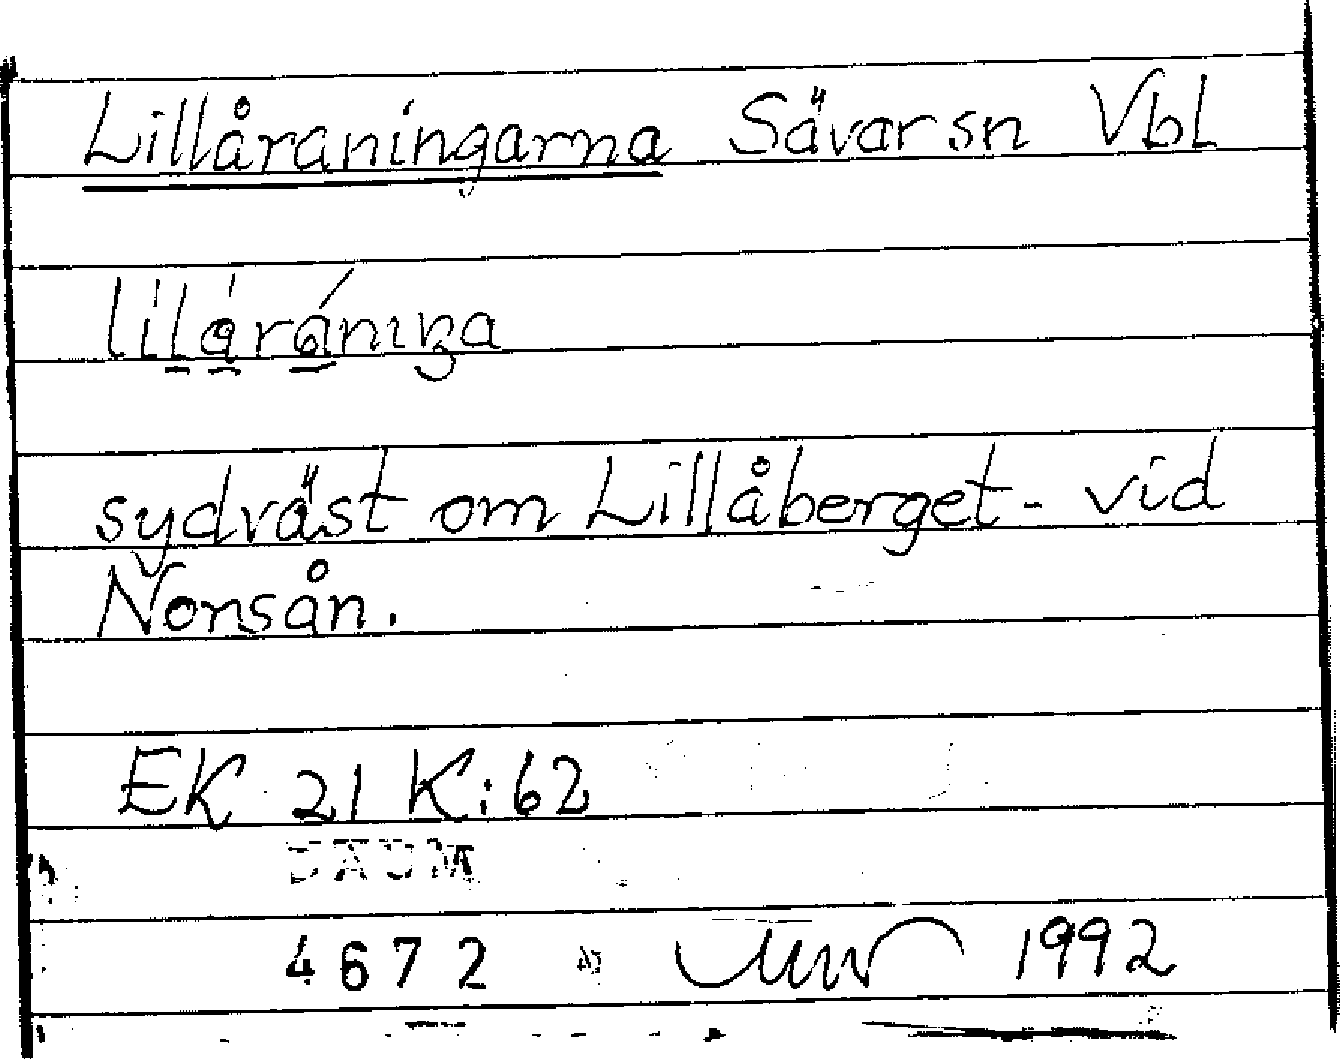 Lillåraningarna Sävar sn Vbl
sydväst om Lillåberget - vid
Norsån.
EK 21 K:62
DAUM
4672 1992